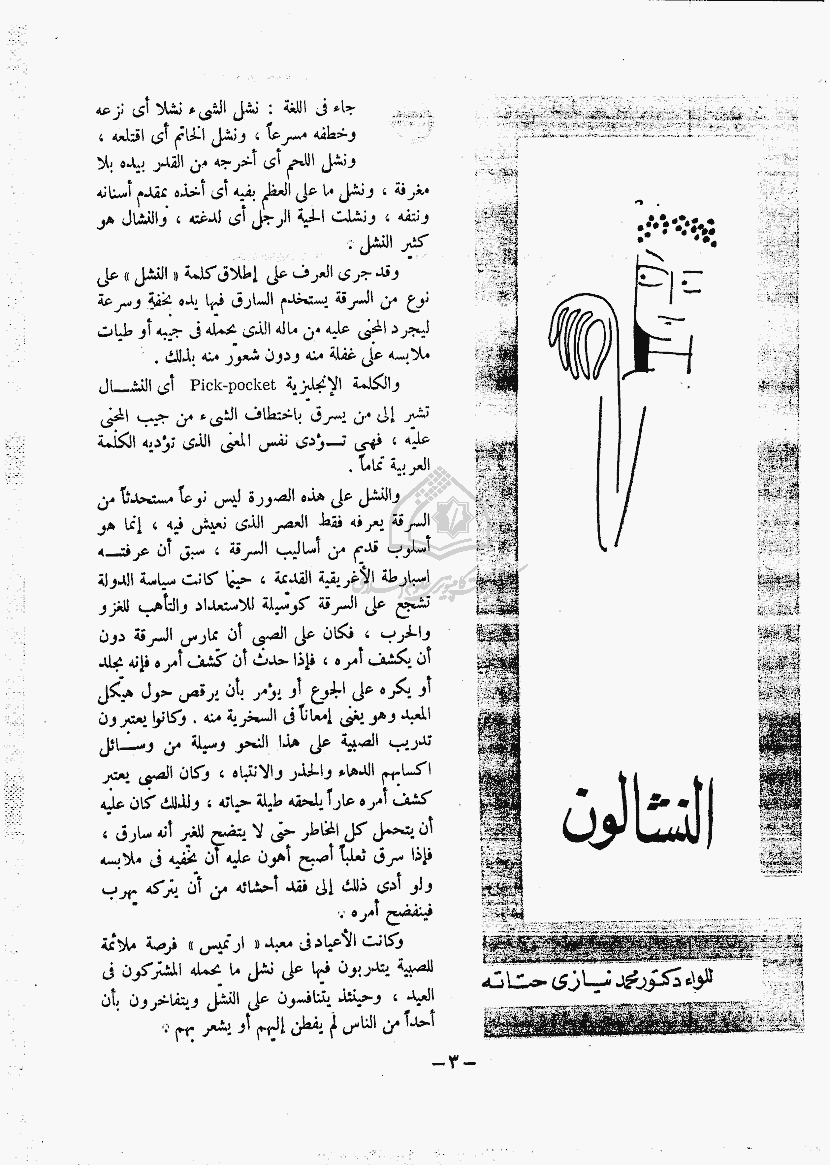 النشالون
للواء دكتور محمد نيازى حتاته
جاء فى اللغة : نشل الشىء نشلا أى نزعه
وخطفه مسرعاً ، ونشل الخاتم أى اقتلعه ،
ونشل اللحم أى أخرجه من القدر بيده بلا
مغرفة ، ونشل ما على العظم بفيه أى أخذه بمقدم أسنانه
ونتفه ، ونشلت الحية الرجل أى لدغته ، والنشال هو
كثير النشل .
وقد جرى العرف على إطلاق كلمة « النشل » على
نوع من السرقة يستخدم السارق فيها يده بخفة وسرعة
ليجرد المجنى عليه من ماله الذى يحمله فى جيبه أو طيات
ملابسه على غفلة منه ودون شعور منه بذلك .
والكلمة الإنجليزية Pick-pocket أى النشال
تشير إلى من يسرق باختطاف الشىء من جيب المجنى
عليه ، فهى تؤدى نفس المعنى الذى تؤديه الكلمة
العربية تماماً .
والنشل على هذه الصورة ليس نوعاً مستحدثاً من
السرقة يعرفه فقط العصر الذى نعيش فيه ، إنما هو
أسلوب قديم من أساليب السرقة ، سبق أن عرفته
اسبارطة الأغريقية القديمة ، حينما كانت سياسة الدولة
تشجع على السرقة كوسيلة للاستعداد والتأهب للغزو
والحرب ، فكان على الصبى أن يمارس السرقة دون
أن يكشف أمره ، فإذا حدث أن كشف أمره فإنه يجلد
أو يكره على الجوع أو يؤمر بأن يرقص حول هيكل
المعبد وهو يغنى إمعاناً فى السخرية منه . وكانوا يعتبرون
تدريب الصبية على هذا النحو وسيلة من وسائل
اكسابهم الدهاء والحذر والانتباه ، وكان الصبى يعتبر
كشف أمره عاراً يلحقه طيلة حياته ، ولذلك كان عليه
أن يتحمل كل المخاطر حتى لا يتضح للغير أنه سارق ،
فإذا سرق ثعلباً أصبح أهون عليه أن يخفيه فى ملابسه
ولو أدى ذلك إلى فقد أحشائه من أن يتركه يهرب
فينفضح أمره .
وكانت الأعياد فى معبد « ارتميس » فرصة ملائمة
للصبية يتدربون فيها على نشل ما يحمله المشتركون فى
العيد ، وحينئذ يتنافسون على النشل ويتفاخرون بأن
أحداً من الناس لم يفطن إليهم أو يشعر بهم .
– ٣ –